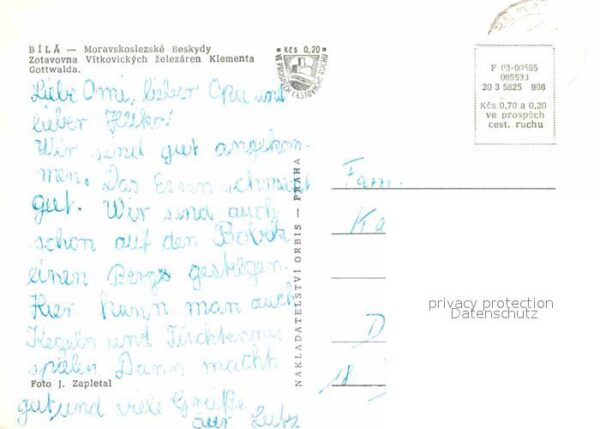 BÍLÁ — Moravskoslezské Beskydy
Zotavovna Vítkovických železáren Klementa
Gottwalda.
Kčs 0,20
VE PROSPĚCH CESTOVNÍHO RUCHU
F 03-60565
065533
20 3 5825 966
Kčs 0,70 a 0,20
ve prospěch
cest. ruchu
Liebe Omi, lieber Opa und
lieber Heiko!
Wir sind gut angekom-
men. Das Essen schmeckt
gut. Wir sind auch
schon auf den
einen Berge gestiegen.
Hier kann man auch
Kegeln und Tischtennis
spielen Dann macht
gut und viele Grüße
eur Lutz
Foto J. Zapletal
NAKLADATELSTVÍ ORBIS — PRAHA
Fam.
Ka
D
privacy protection
Datenschutz